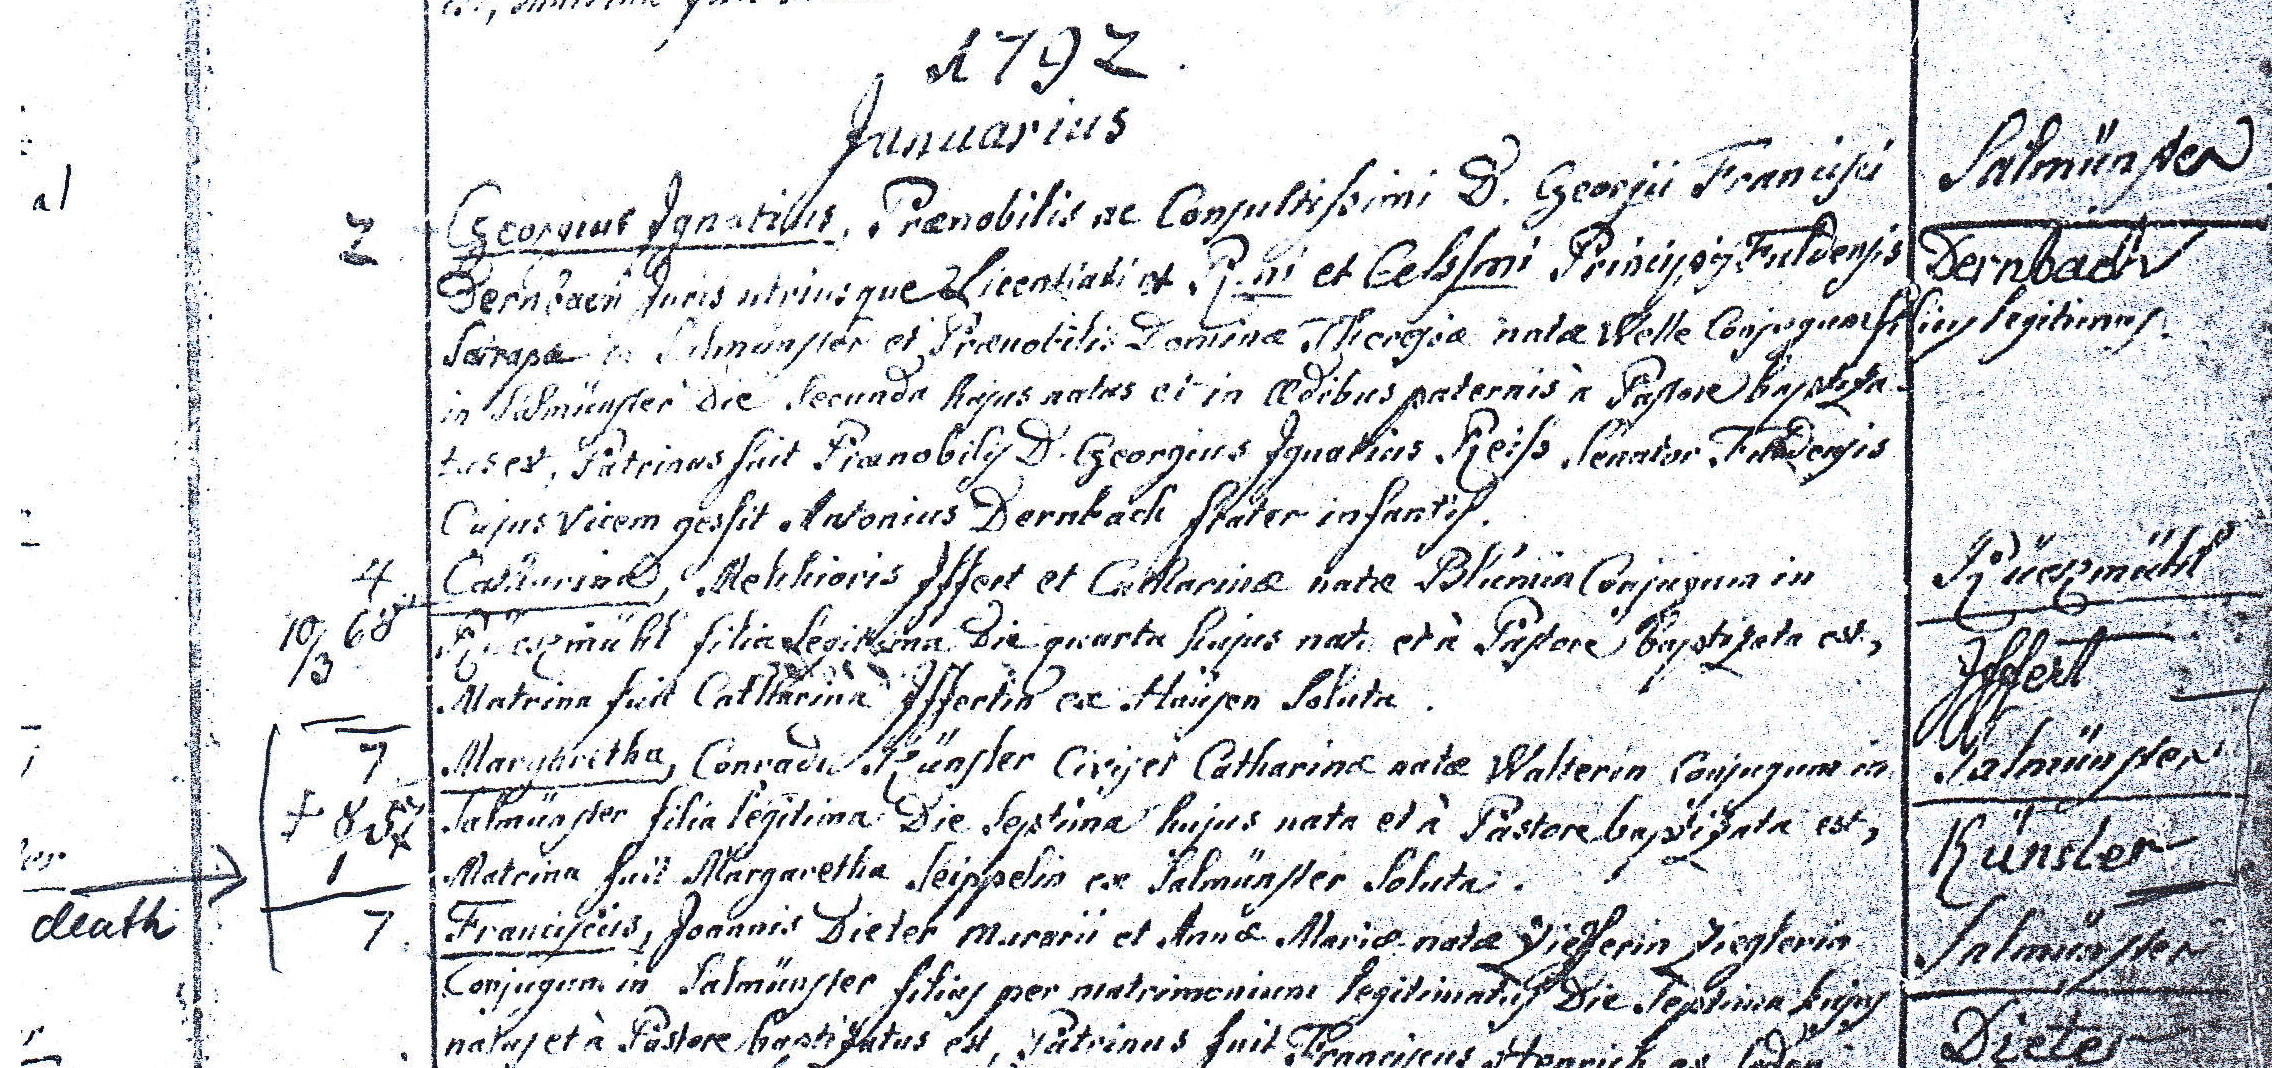 1792.
Januarius
al
Salmünster
2 Georgius Ignatius, Prænobilis ac Consultissimi D. Georgii Francisci
Dernbach Juris utriusque Licentiati et R.mi et Celssmi Principis Fuldensis
Dernbach
Satrapæ in Salmünster et Prænobilis Dominæ Theresiæ natæ Welle Conjugum filius legitimus.
in Salmünster Die Secunda hujus natus et in ædibus paternis à Pastore baptiza-
tus est, Patrinus fuit Prænobilis D. Georgius Ignatius Reiss Senator Fuldensis
Cujus vicem gessit Antonius Dernbach frater infantis.
4 Catharina, Melchioris Iffert et Catharinæ natæ Blümin Conjugum in
Rückmühl
10/3 68 Rückmühl filia legitima Die quarta hujus nata et à Pastore baptizata est,
Iffert
Matrina fuit Catharina Iffertin ex Hausen Soluta.
7 Margaretha, Conradi Künster Civis et Catharinæ natæ Walterin Conjugum in
Salmünster
+ 8 Salmünster filia legitima Die Septima hujus nata et à Pastore baptizata est,
Künsler
1 Matrina fuit Margaretha Seippelin ex Salmünster Soluta.
death
7. Franciscus, Joannis Dieter murarii et Annæ Mariæ natæ Zieglerin
Salmünster
Conjugum in Salmünster filius per matrimonium legitimatus Die Septima hujus
natus et à Pastore baptizatus est, Patrinus fuit Franciscus Henrich ex
Dieter